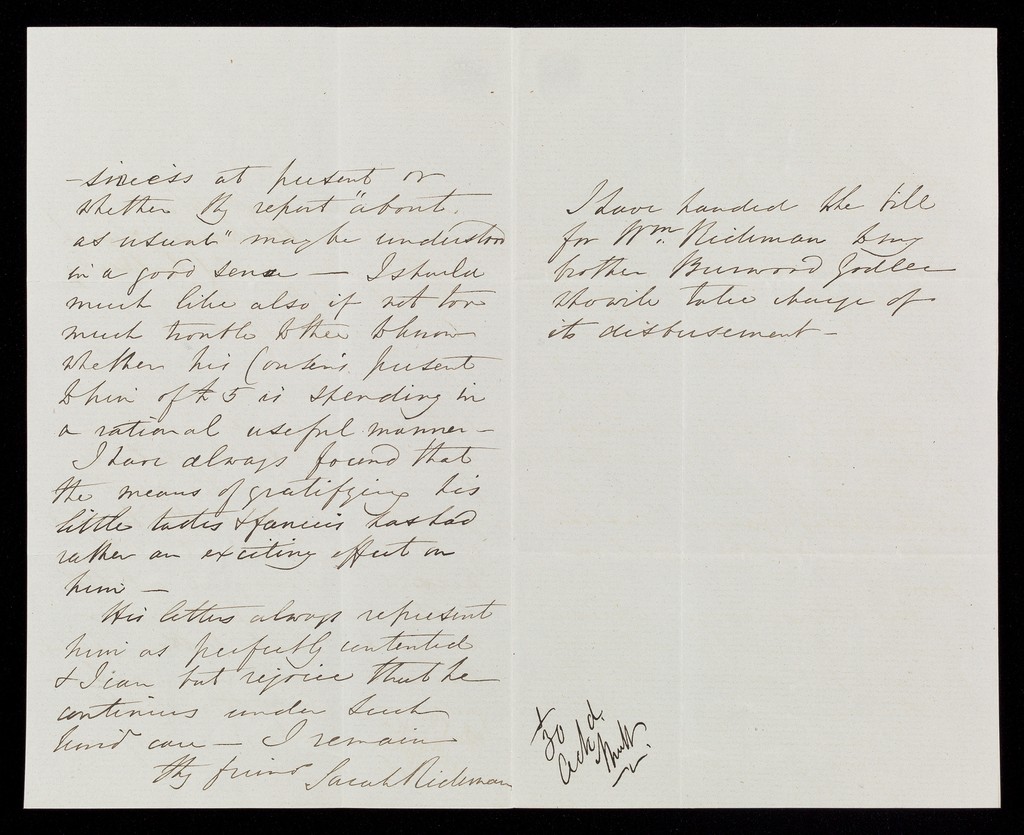 -siveiss at present or
whether thy report "about
as usual" may be understood
in a good sense — I should
much like also if not too
much trouble to thee to know
whether his Cousin's present
to him of £5 is spending in
a rational useful manner —
I have always found that
the means of gratifying his
little tastes & fancies has had
rather an exciting effect on
him —
His letters always represent
him as perfectly contented
& I can but rejoice that he
continues under such
kind care — I remain
thy friend Sarah Rickman
I have handed the bill
for Wm. Rickman to my
brother Burwood Godlee
who will take charge of
its disbursement —
30
Ackd.